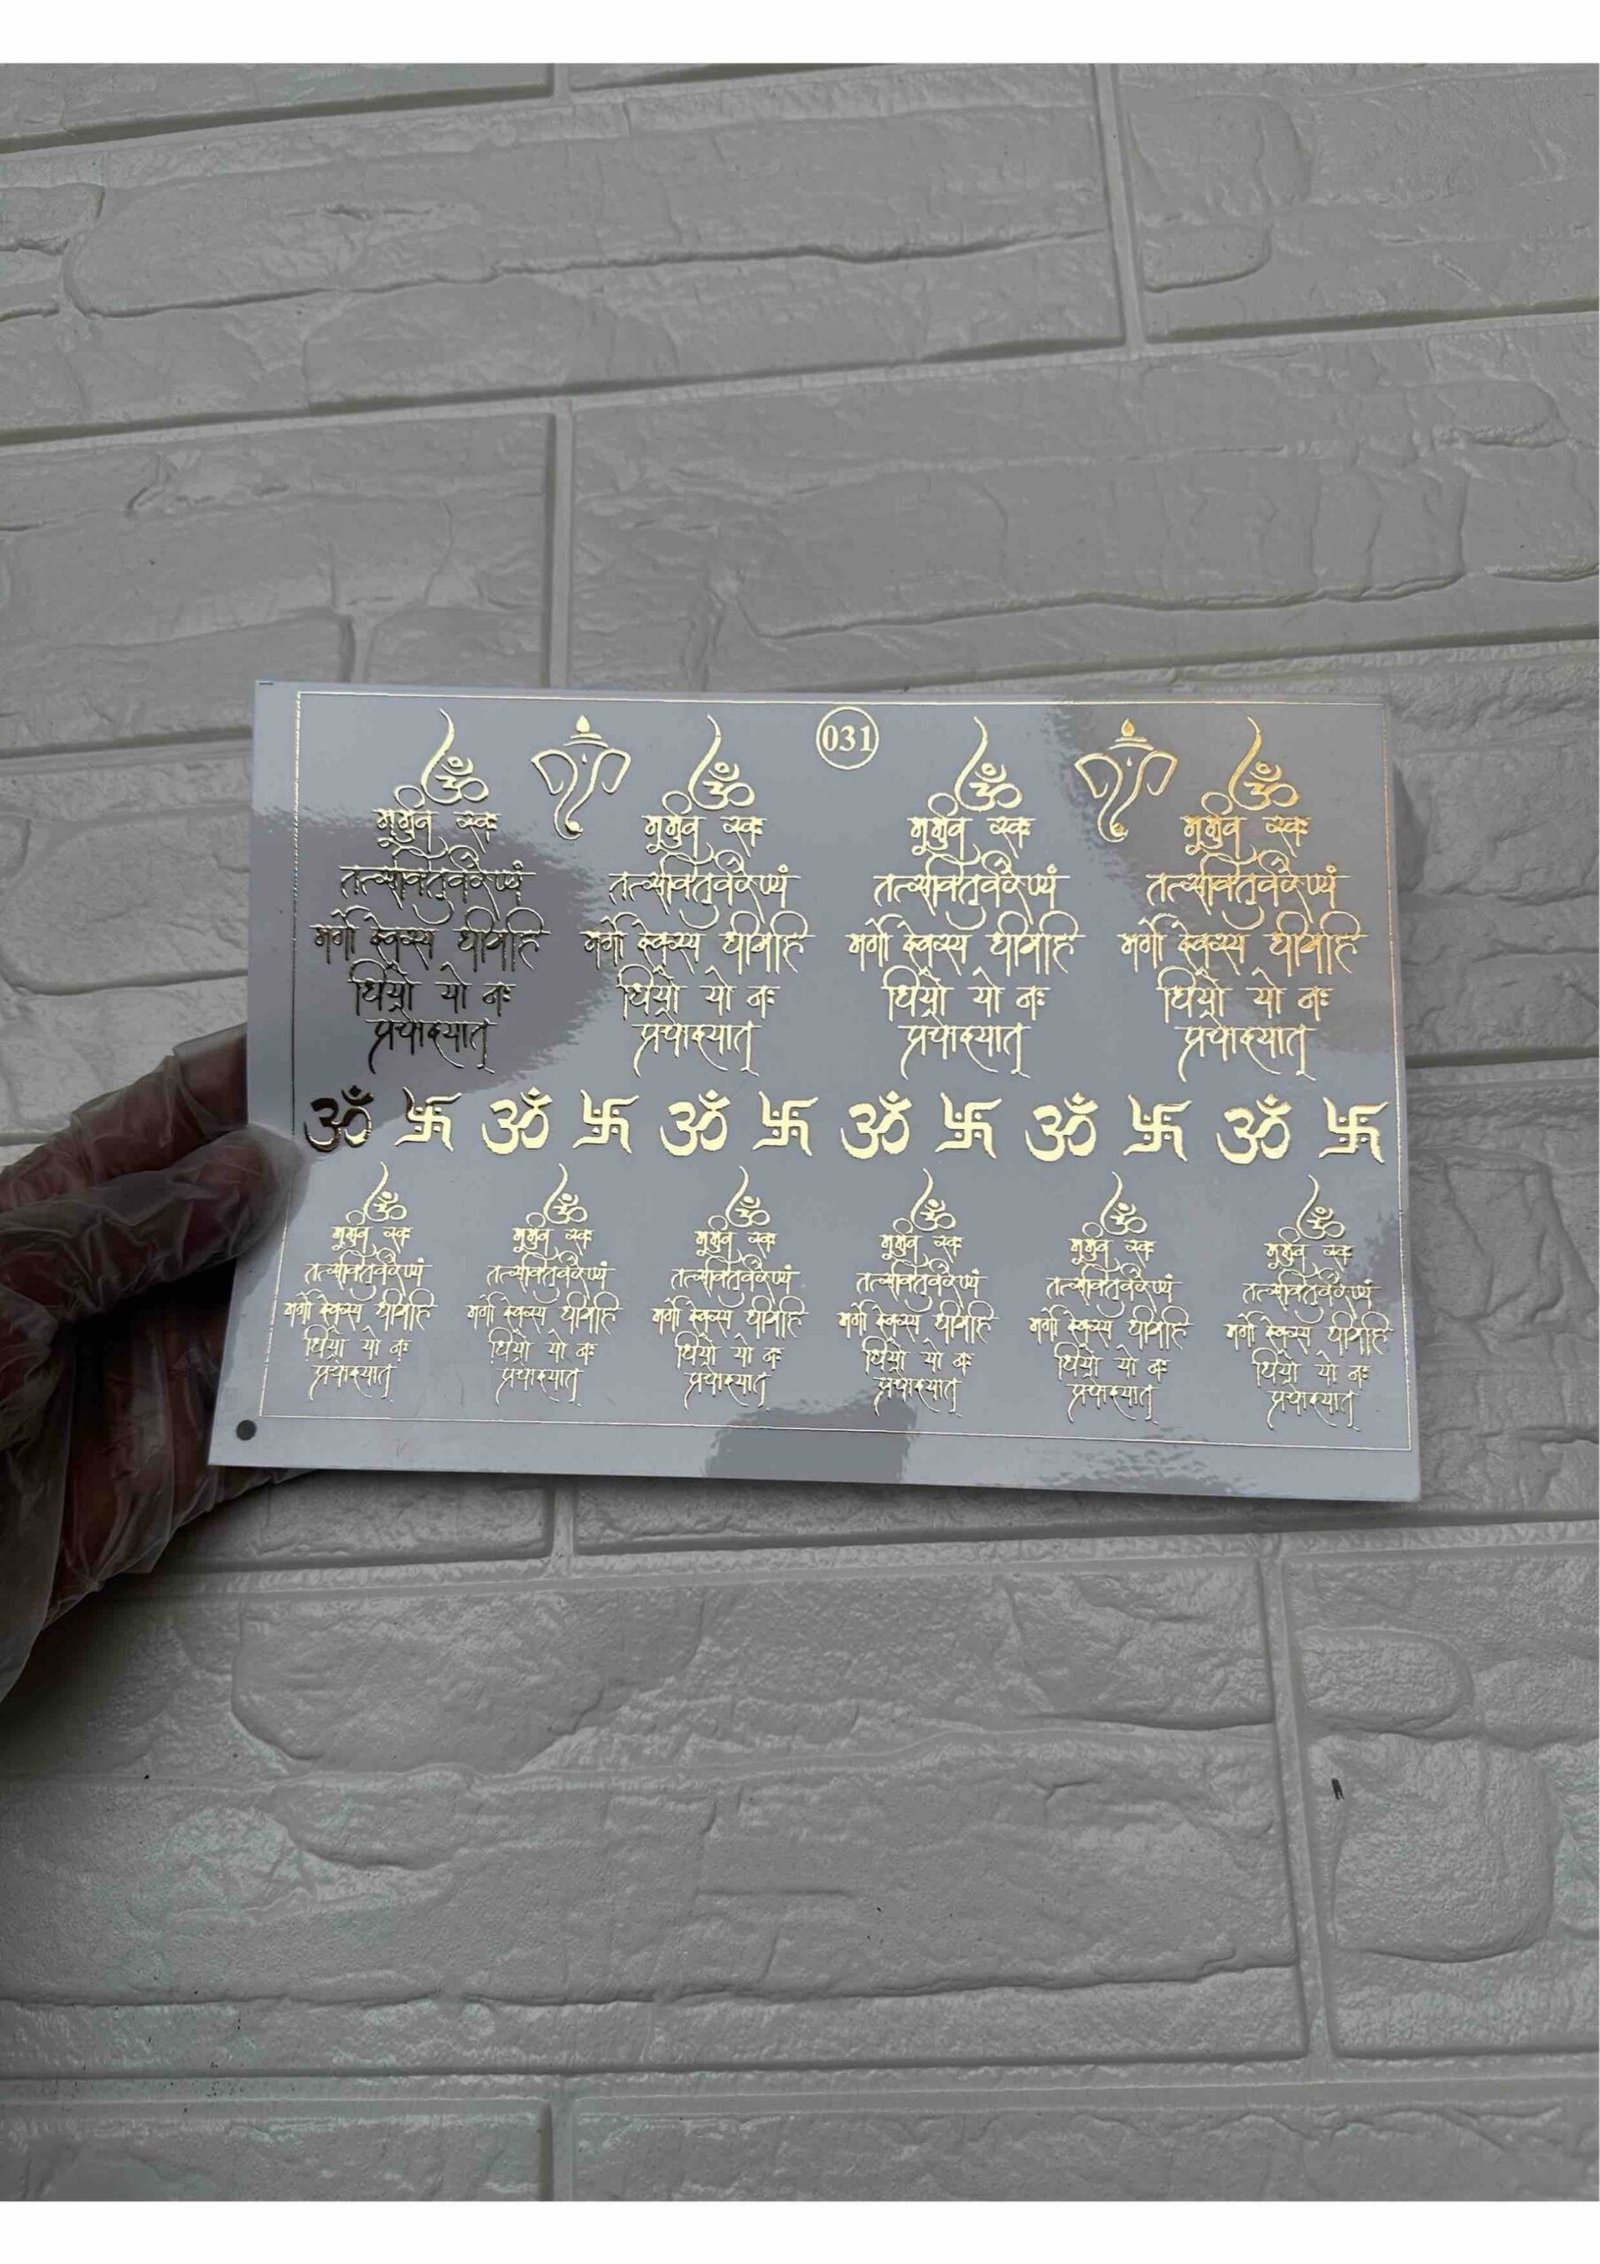 031
ॐ ॐ ॐ ॐ
भूर्भुव स्वः भूर्भुव स्वः भूर्भुव स्वः भूर्भुव स्वः
तत्सवितुर्वरेण्यं तत्सवितुर्वरेण्यं तत्सवितुर्वरेण्यं तत्सवितुर्वरेण्यं
भर्गो देवस्य धीमहि भर्गो देवस्य धीमहि भर्गो देवस्य धीमहि भर्गो देवस्य धीमहि
धियो यो नः धियो यो नः धियो यो नः धियो यो नः
प्रचोदयात् प्रचोदयात् प्रचोदयात् प्रचोदयात्
ॐ 卐 ॐ 卐 ॐ 卐 ॐ 卐 ॐ 卐 ॐ 卐
ॐ ॐ ॐ ॐ ॐ ॐ
भूर्भुव स्वः भूर्भुव स्वः भूर्भुव स्वः भूर्भुव स्वः भूर्भुव स्वः भूर्भुव स्वः
तत्सवितुर्वरेण्यं तत्सवितुर्वरेण्यं तत्सवितुर्वरेण्यं तत्सवितुर्वरेण्यं तत्सवितुर्वरेण्यं तत्सवितुर्वरेण्यं
भर्गो देवस्य धीमहि भर्गो देवस्य धीमहि भर्गो देवस्य धीमहि भर्गो देवस्य धीमहि भर्गो देवस्य धीमहि भर्गो देवस्य धीमहि
धियो यो नः धियो यो नः धियो यो नः धियो यो नः धियो यो नः धियो यो नः
प्रचोदयात् प्रचोदयात् प्रचोदयात् प्रचोदयात् प्रचोदयात् प्रचोदयात्